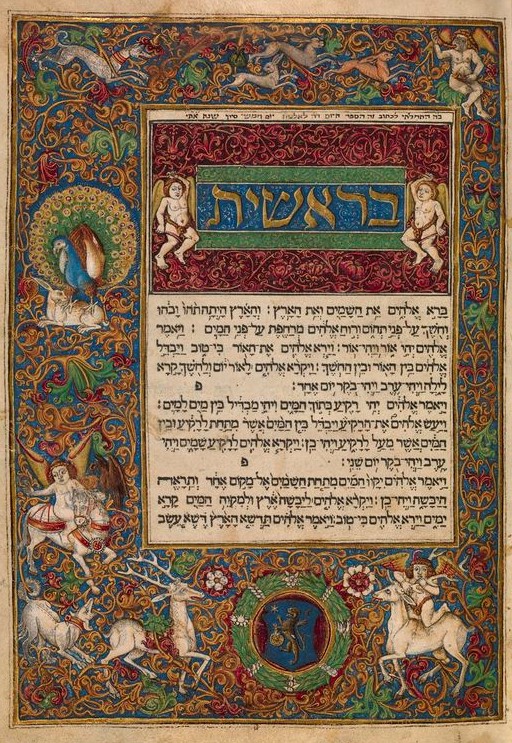 התחלתי לכתוב זה הספר היום סיון שנת
בראשית
ברא אלהים את השמים ואת הארץ׃ והארץ היתה תהו ובהו
וחשך על פני תהום ורוח אלהים מרחפת על פני המים׃ ויאמר
אלהים יהי אור ויהי אור׃ וירא אלהים את האור כי טוב ויבדל
אלהים בין האור ובין החשך׃ ויקרא אלהים לאור יום ולחשך קרא
לילה ויהי ערב ויהי בקר יום אחד׃ פ
ויאמר אלהים יהי רקיע בתוך המים ויהי מבדיל בין מים למים׃
ויעש אלהים את הרקיע ויבדל בין המים אשר מתחת לרקיע ובין
המים אשר מעל לרקיע ויהי כן׃ ויקרא אלהים לרקיע שמים ויהי
ערב ויהי בקר יום שני׃ פ
ויאמר אלהים יקוו המים מתחת השמים אל מקום אחד ותראה
היבשה ויהי כן׃ ויקרא אלהים ליבשה ארץ ולמקוה המים קרא
ימים וירא אלהים כי טוב׃ ויאמר אלהים תדשא הארץ דשא עשב